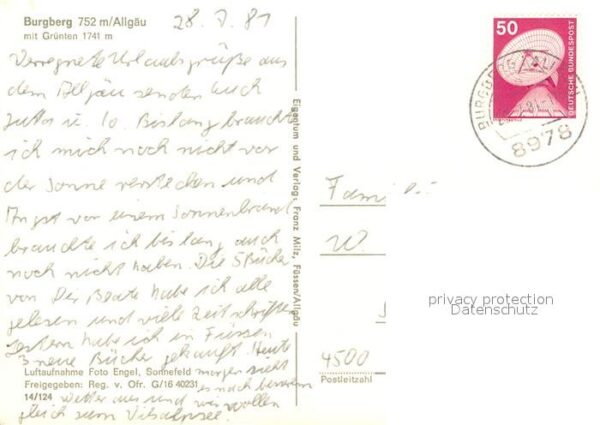 Burgberg 752 m/Allgäu
mit Grünten 1741 m
28. 7. 81
Verregnete Urlaubsgrüße aus
dem Allgäu senden Euch
Jutta u. Jo. Bislang brauchte
ich mich noch nicht vor
der Sonne verstecken und
Angst vor einem Sonnenbrand
brauchte ich bislang auch
noch nicht haben. Die 5 Bücher
von Der Beate habe ich alle
gelesen und viele Zeitschriften
gestern habe ich in Füssen
3 neue Bücher gekauft. Heute
morgen sieht
es nach besserem
Wetter aus und wir wollen
gleich zum Vilsalpsee.
Luftaufnahme Foto Engel, Sonnefeld
Freigegeben: Reg. v. Ofr. G/16 40231
14/124
Eigentum und Verlag: Franz Milz, Füssen/Allgäu
50
DEUTSCHE BUNDESPOST
BURGBERG
8978
Fami
W
privacy protection
Datenschutz
4500
Postleitzahl